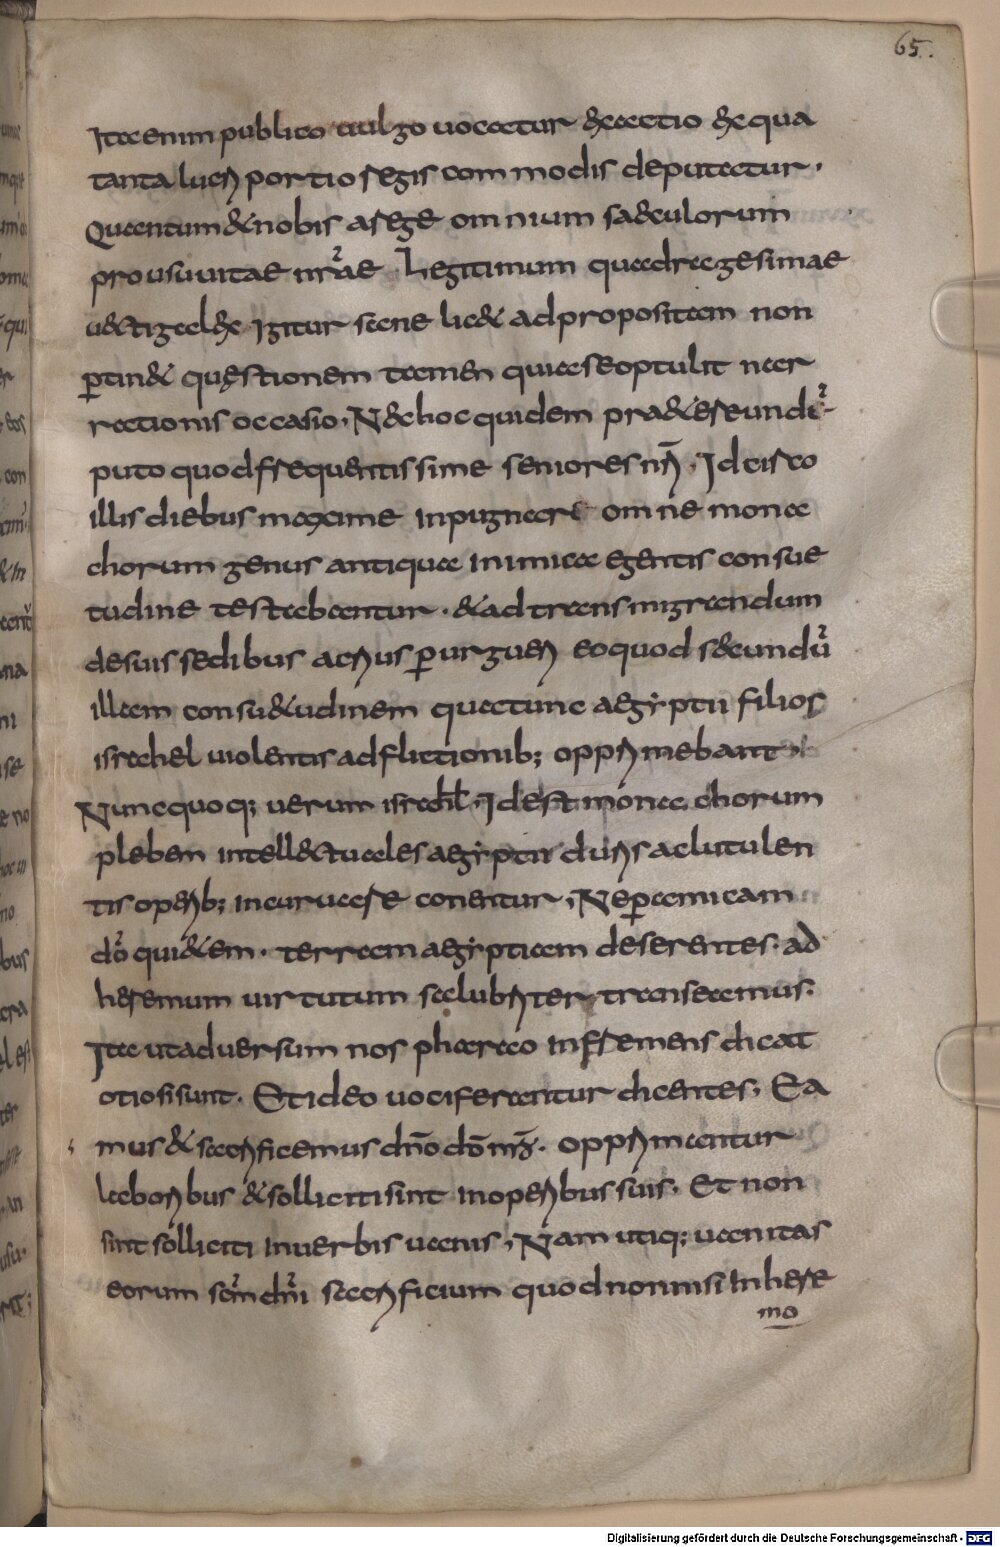 65.
Ita enim publico uulgo uocatur exactio ex qua
tanta lucri portio regis commodis deputatur.
Quantum & nobis a rege omnium saeculorum
pro usu uitae nrae Legitimum quadragesimae
uectigal ex Igitur sane lic& ad propositam non
ptin& quęstionem tamen quia se optulit nar
rationis occasio, Nec hoc quidem praetereundū
puto quod frequentissime seniores nri, Idcirco
illis diebus maxime inpugnari omne mona
chorum genus antiqua inimicae gentis consue
tudine testabantur. & ad transmigrandum
de suis sedibus acrius purgueri eo quod secundū
illam consu&udinem qua tunc aegyptii filios
israhel uiolentis adflictionib; opprimebant,
Nunc quoq; uerum israhl, Id est mona chorum
plebem intellectuales aegyptii duris ac lutulen
tis operib; incuruare conentur, Ne p amicam
dō qui&em. terram aegyptiam deserentes. ad
heremum uirtutum salubriter transeamus.
Ita ut aduersum nos pharao infremens dicat
otiosi sunt. Et ideo uociferantur dicentes, Ea
mus & sacrificemus dno dō nro. opprimantur
laboribus & solliciti sint in operibus suis. Et non
sint solliciti in uerbis uanis, Nam utiq; uanitas
eorum scm dni sacrificium quod non nisi in here
mo
Digitalisierung gefördert durch die Deutsche Forschungsgemeinschaft - DFG